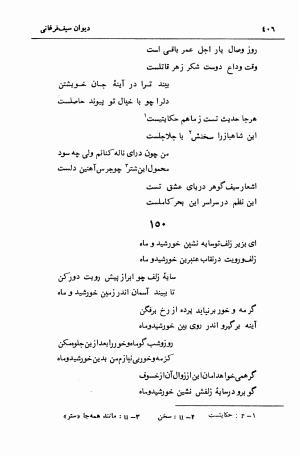 ۴۰۶
دیوان سیف فرغانی
روز وصال یار اجل عمر باقی است
وقت وداع دوست شکر زهر قاتلست
بیند ترا در آینهٔ جان خویشتن
دلرا چو با خیال تو پیوند حاصلست
هرجا حدیث تست ز ما هم حکایتیست۱
این شاهباز را سخنش۲ با جلاجلست
من چون درای ناله کنانم ولی چه سود
محمول این شتر۳ چو جرس آهنین دلست
اشعار سیف گوهر دریای عشق تست
این نظم در سراسر این بحر کاملست
۱۵۰
ای بزیر زلف تو سایه نشین خورشید و ماه
زلف و رویت در نقاب عنبرین خورشید و ماه
سایهٔ زلف چو ابر از پیش رویت دور کن
تا ببیند آسمان اندر زمین خورشید و ماه
گر مه و خور بر نیاید پرده از رخ برفگن
آینه برگیر و اندر روی بین خورشید و ماه
روز و شب گو ماه و خور را بعد ازین جلوه مکن
کز مه و خور بی نیازم من بدین خورشید و ماه
گر همی خواهد امان این از زوال آن از خسوف
گو برو در سایهٔ زلفش نشین خورشید و ماه
۱- ۲ : حکایتست ۲- ۱۱ : سخن ۳- ۱۱ : مانند همه جا «ستر»